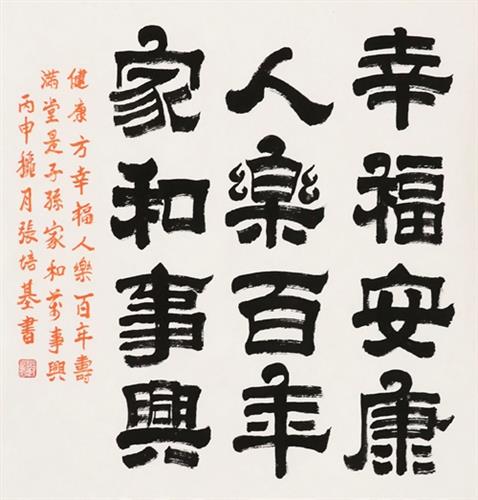 幸福安康
人樂百年
家和事興
健康方幸福人樂百年壽
滿堂是子孫家和萬事興
丙申穐月張培基書